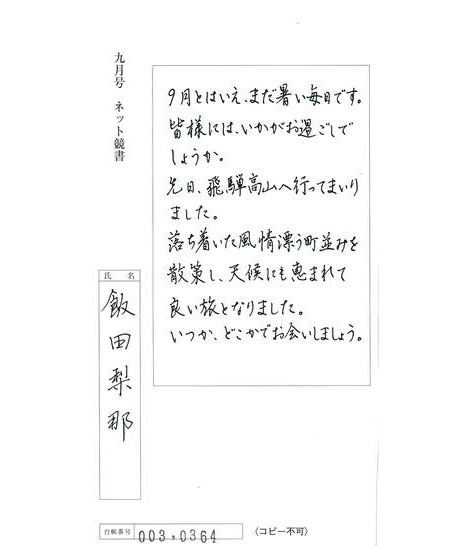 九月号 ネット競書
9月とはいえ、まだ暑い毎日です。
皆様には、いかがお過ごしで
しょうか。
先日、飛騨高山へ行ってまいり
ました。
落ち着いた風情漂う町並みを
散策し、天候にも恵まれて
良い旅となりました。
いつか、どこかでお会いしましょう。
氏名
飯田梨那
台帳番号 003,0364 (コピー不可)